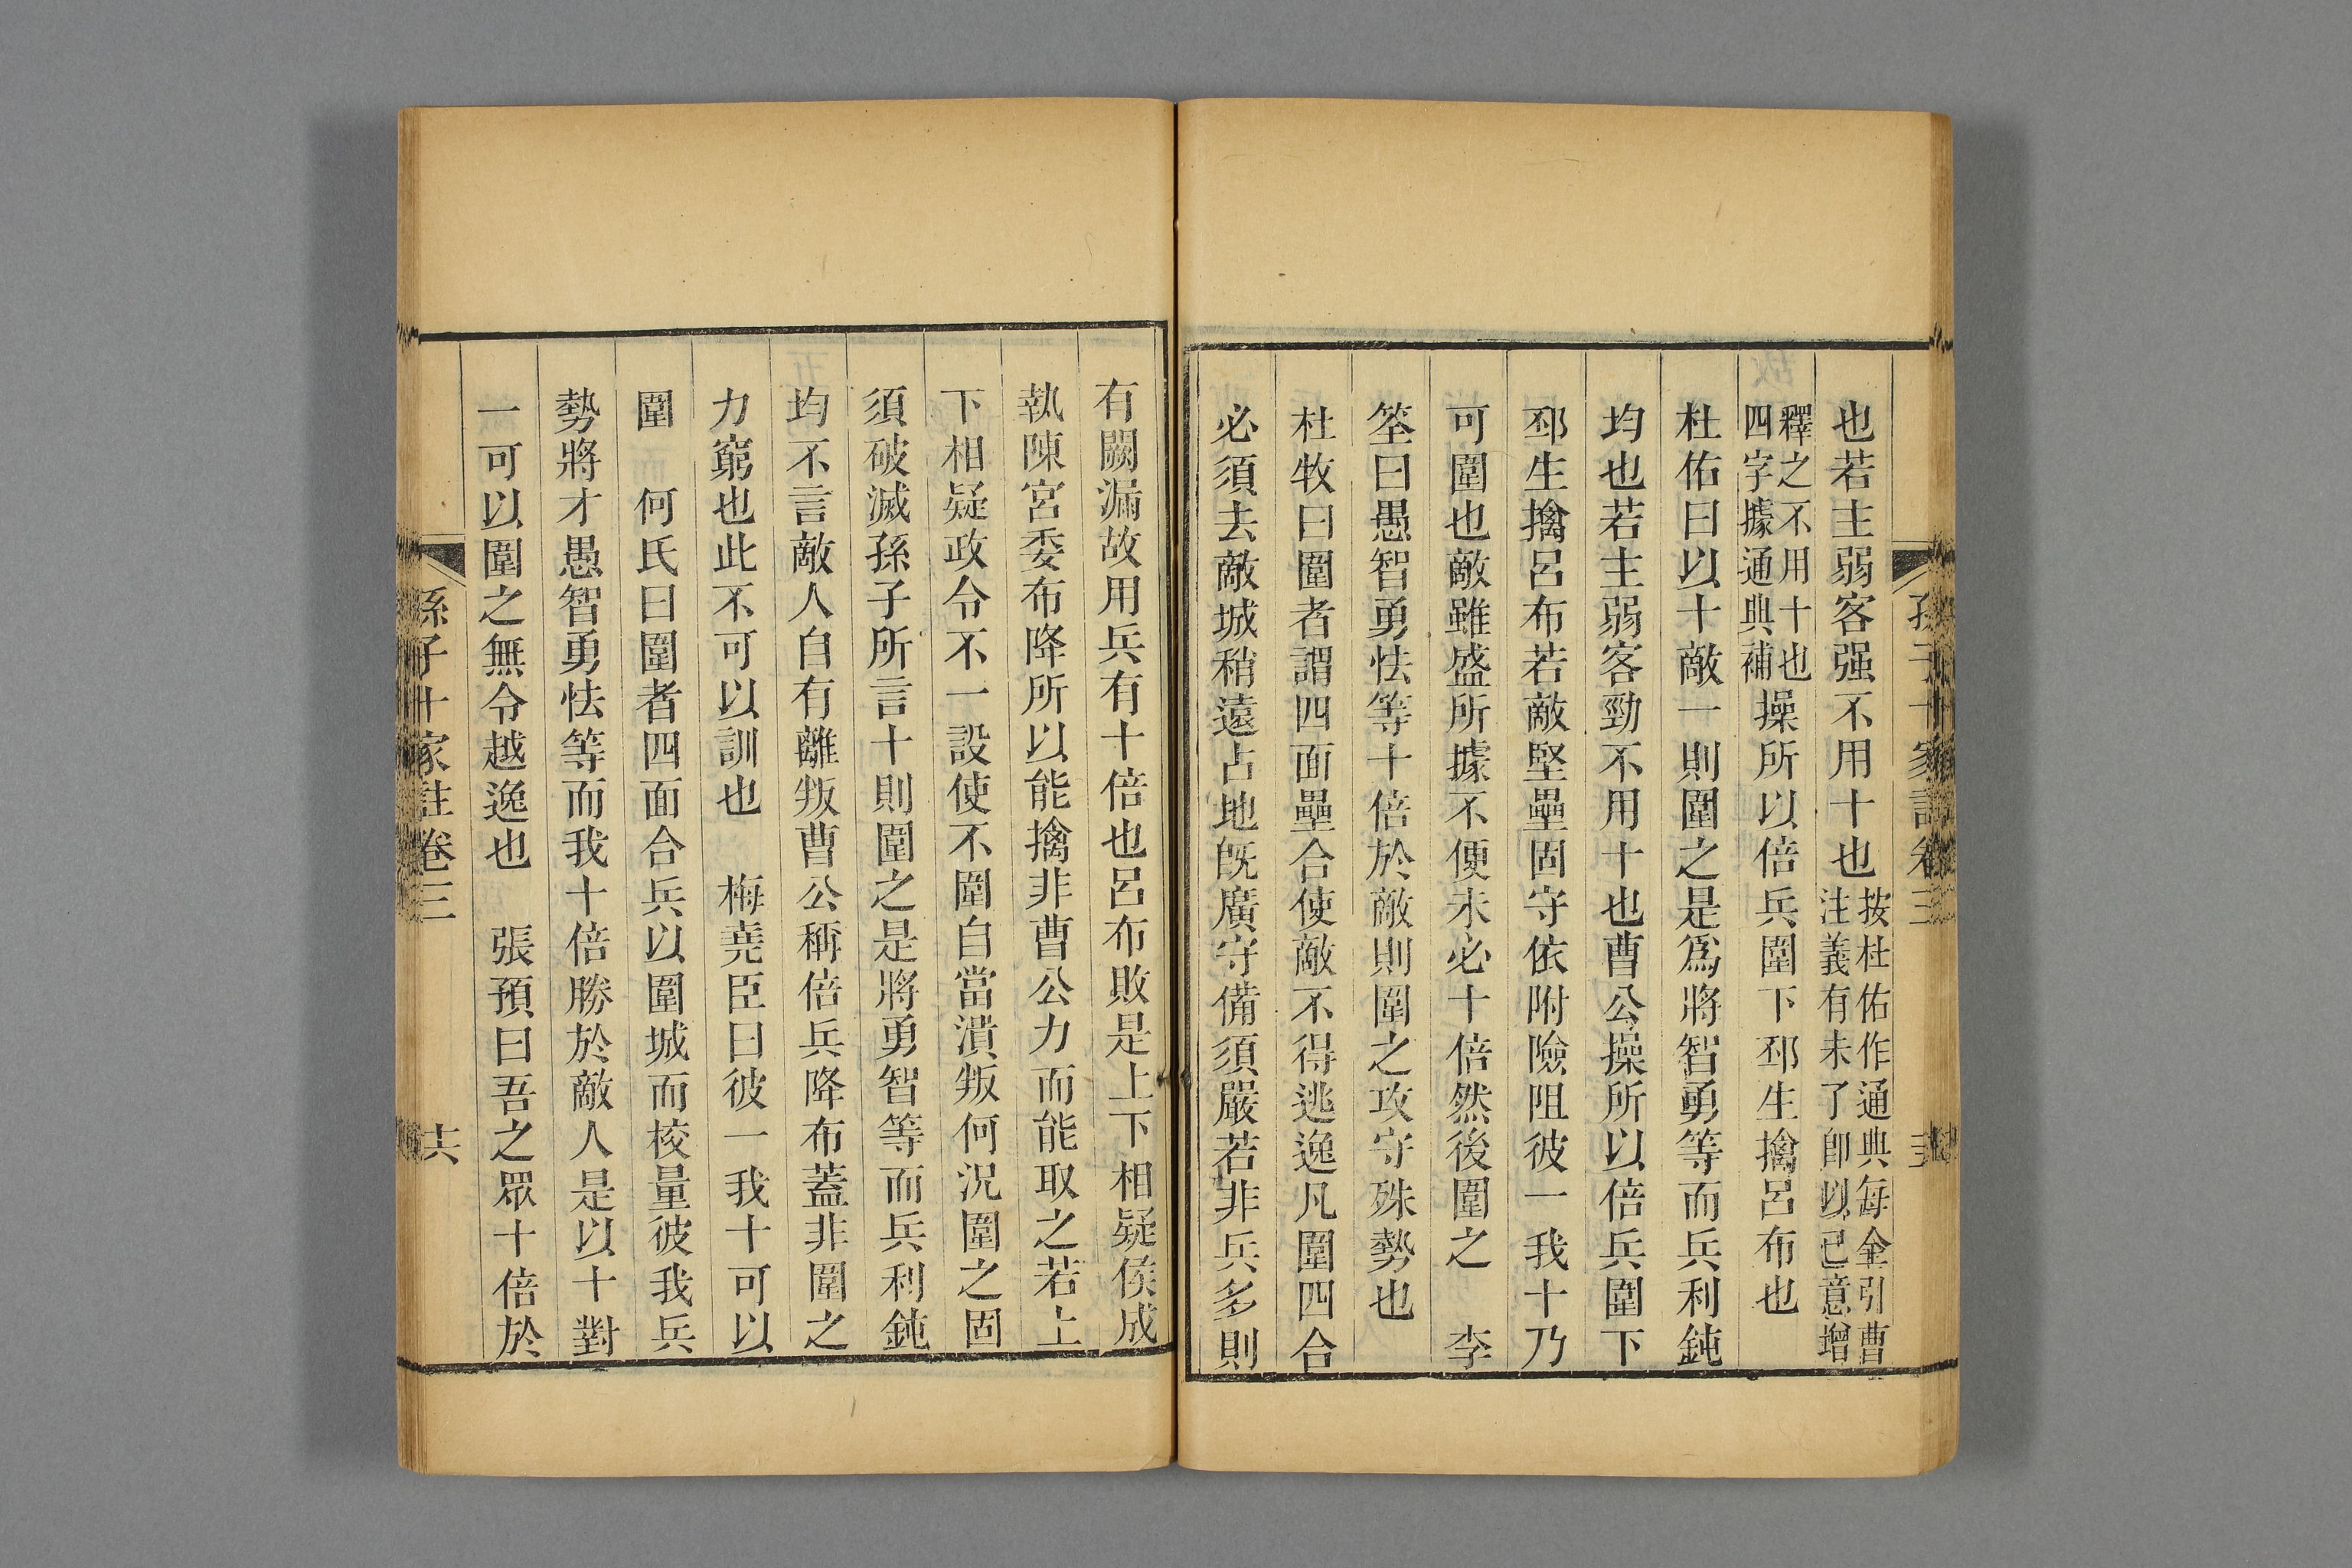 孫子十家註卷三
也若主弱客强不用十也按杜佑作通典每全引曹
注義有未了卽以已意增
釋之不用十也
四字據通典補操所以倍兵圍下邳生擒呂布也
杜佑曰以十敵一則圍之是爲將智勇等而兵利鈍
均也若主弱客勁不用十也曹公操所以倍兵圍下
邳生擒呂布若敵堅壘固守依附險阻彼一我十乃
可圍也敵雖盛所據不便未必十倍然後圍之　李
筌曰愚智勇怯等十倍於敵則圍之攻守殊勢也
杜牧曰圍者謂四面壘合使敵不得逃逸凡圍四合
必須去敵城稍遠占地旣廣守備須嚴若非兵多則
有闕漏故用兵有十倍也呂布敗是上下相疑侯成
執陳宮委布降所以能擒非曹公力而能取之若上
下相疑政令不一設使不圍自當潰叛何況圍之固
須破滅孫子所言十則圍之是將勇智等而兵利鈍
均不言敵人自有離叛曹公稱倍兵降布蓋非圍之
力窮也此不可以訓也　梅堯臣曰彼一我十可以
圍　何氏曰圍者四面合兵以圍城而校量彼我兵
勢將才愚智勇怯等而我十倍勝於敵人是以十對
一可以圍之無令越逸也　張預曰吾之眾十倍於
孫子十家註卷三　十六